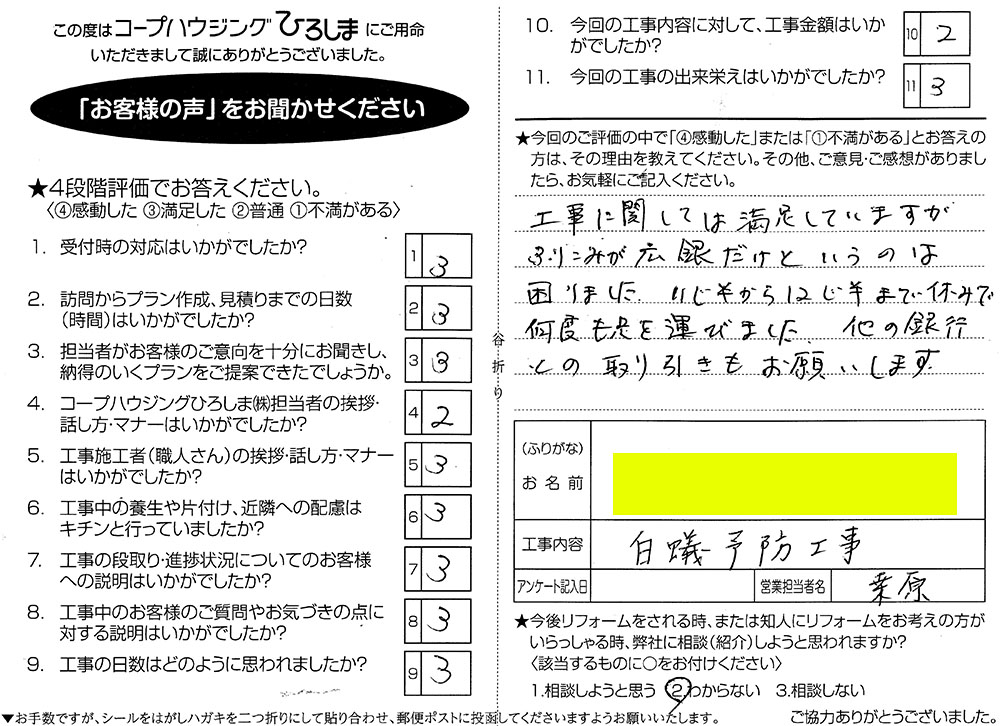 この度はコープハウジングひろしまにご用命
いただきまして誠にありがとうございました。
「お客様の声」をお聞かせください
★4段階評価でお答えください。
〈④感動した ③満足した ②普通 ①不満がある〉
1. 受付時の対応はいかがでしたか？
1 3
2. 訪問からプラン作成、見積りまでの日数
（時間）はいかがでしたか？
2 3
3. 担当者がお客様のご意向を十分にお聞きし、
納得のいくプランをご提案できたでしょうか。
3 3
4. コープハウジングひろしま㈱担当者の挨拶・
話し方・マナーはいかがでしたか？
4 2
5. 工事施工者（職人さん）の挨拶・話し方・マナー
はいかがでしたか？
5 3
6. 工事中の養生や片付け、近隣への配慮は
キチンと行っていましたか？
6 3
7. 工事の段取り・進捗状況についてのお客様
への説明はいかがでしたか？
7 3
8. 工事中のお客様のご質問やお気づきの点に
対する説明はいかがでしたか？
8 3
9. 工事の日数はどのように思われましたか？
9 3
谷折り
10. 今回の工事内容に対して、工事金額はいか
がでしたか？
10 2
11. 今回の工事の出来栄えはいかがでしたか？
11 3
★今回のご評価の中で「④感動した」または「①不満がある」とお答えの
方は、その理由を教えてください。その他、ご意見・ご感想がありまし
たら、お気軽にご記入ください。
工事に関しては満足していますが
ふりこみが広銀だけというのは
困りました 11じ半から12じ半まで休みで
何度も足を運びました 他の銀行
との取り引きもお願いします
（ふりがな）
お名前
工事内容 白蟻予防工事
アンケート記入日 営業担当者名 桑原
★今後リフォームをされる時、または知人にリフォームをお考えの方が
いらっしゃる時、弊社に相談（紹介）しようと思われますか？
〈該当するものに○をお付けください〉
1.相談しようと思う ②わからない 3.相談しない
▼お手数ですが、シールをはがしハガキを二つ折りにして貼り合わせ、郵便ポストに投函してくださいますようお願いいたします。 ご協力ありがとうございました。